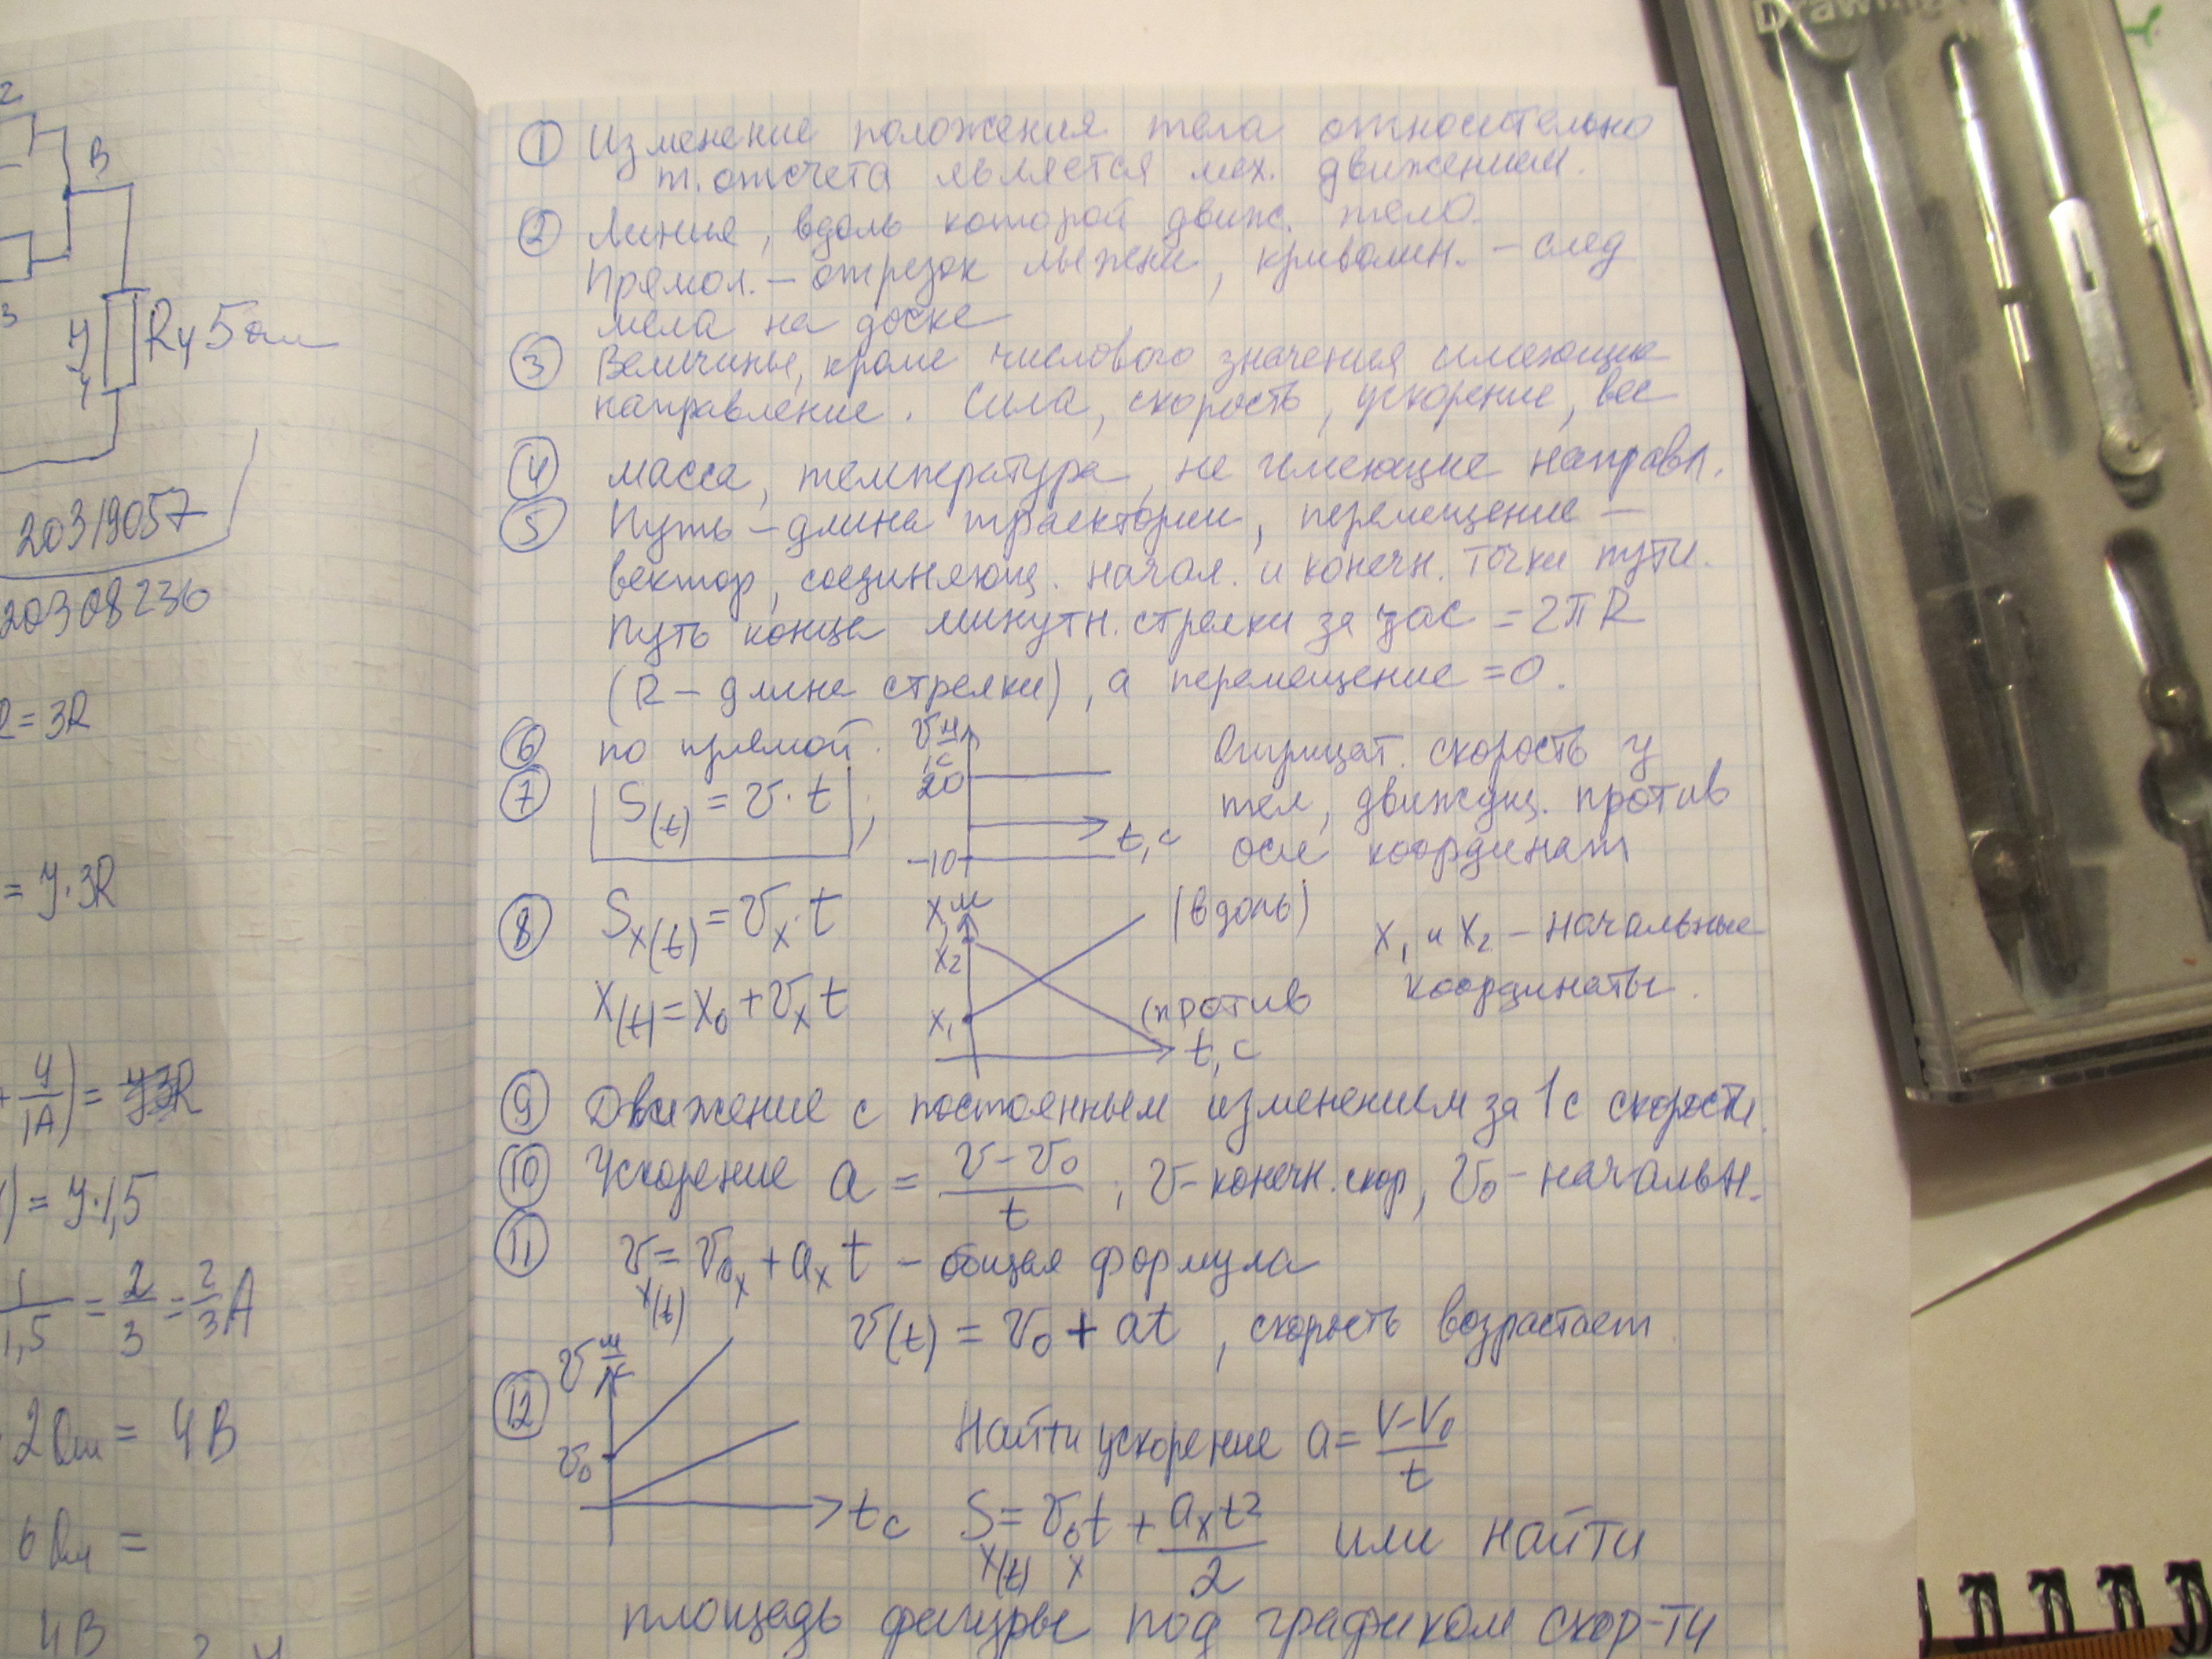 2
B
3
R4 5 Ом
20319057
20308236
R = 3R
= У·3R
+ У/1А) = У3R
) = У·1,5
1/1,5 = 2/3 = 2/3 А
2 Ом = 4 В
6 Ом =
4 В
Drawing
① Изменение положения тела относительно
т. отсчета является мех. движением.
② Линия, вдоль которой движ. тело.
Прямол. – отрезок лыжни, криволин. – след
мела на доске
③ Величины, кроме числового значения имеющие
направление. Сила, скорость, ускорение, вес
④ масса, температура, не имеющие направл.
⑤ Путь – длина траектории, перемещение –
вектор, соединяющ. начал. и конечн. точки пути.
Путь конца минутн. стрелки за час = 2πR
(R – длина стрелки), а перемещение = 0.
⑥ по прямой.
⑦ S(t) = v·t ;
v м/с
20
-10
t, с
Отрицат. скорость у
тел, движущ. против
оси координат
⑧ Sx(t) = vx·t
x(t) = x₀ + vx t
x, м
x₂
x₁
(вдоль)
(против
t, с
x₁ и x₂ – начальные
координаты.
⑨ Движение с постоянным изменением за 1с скорости.
⑩ Ускорение a = (v – v₀)/t ; v – конечн. скор, v₀ – начальн.
⑪ vx(t) = v₀x + ax t – общая формула
v(t) = v₀ + at, скорость возрастает
⑫ v м/с
v₀
t с
Найти ускорение a = (v – v₀)/t
Sx(t) = v₀x t + ax t²/2 или найти
площадь фигуры под графиком скор-ти